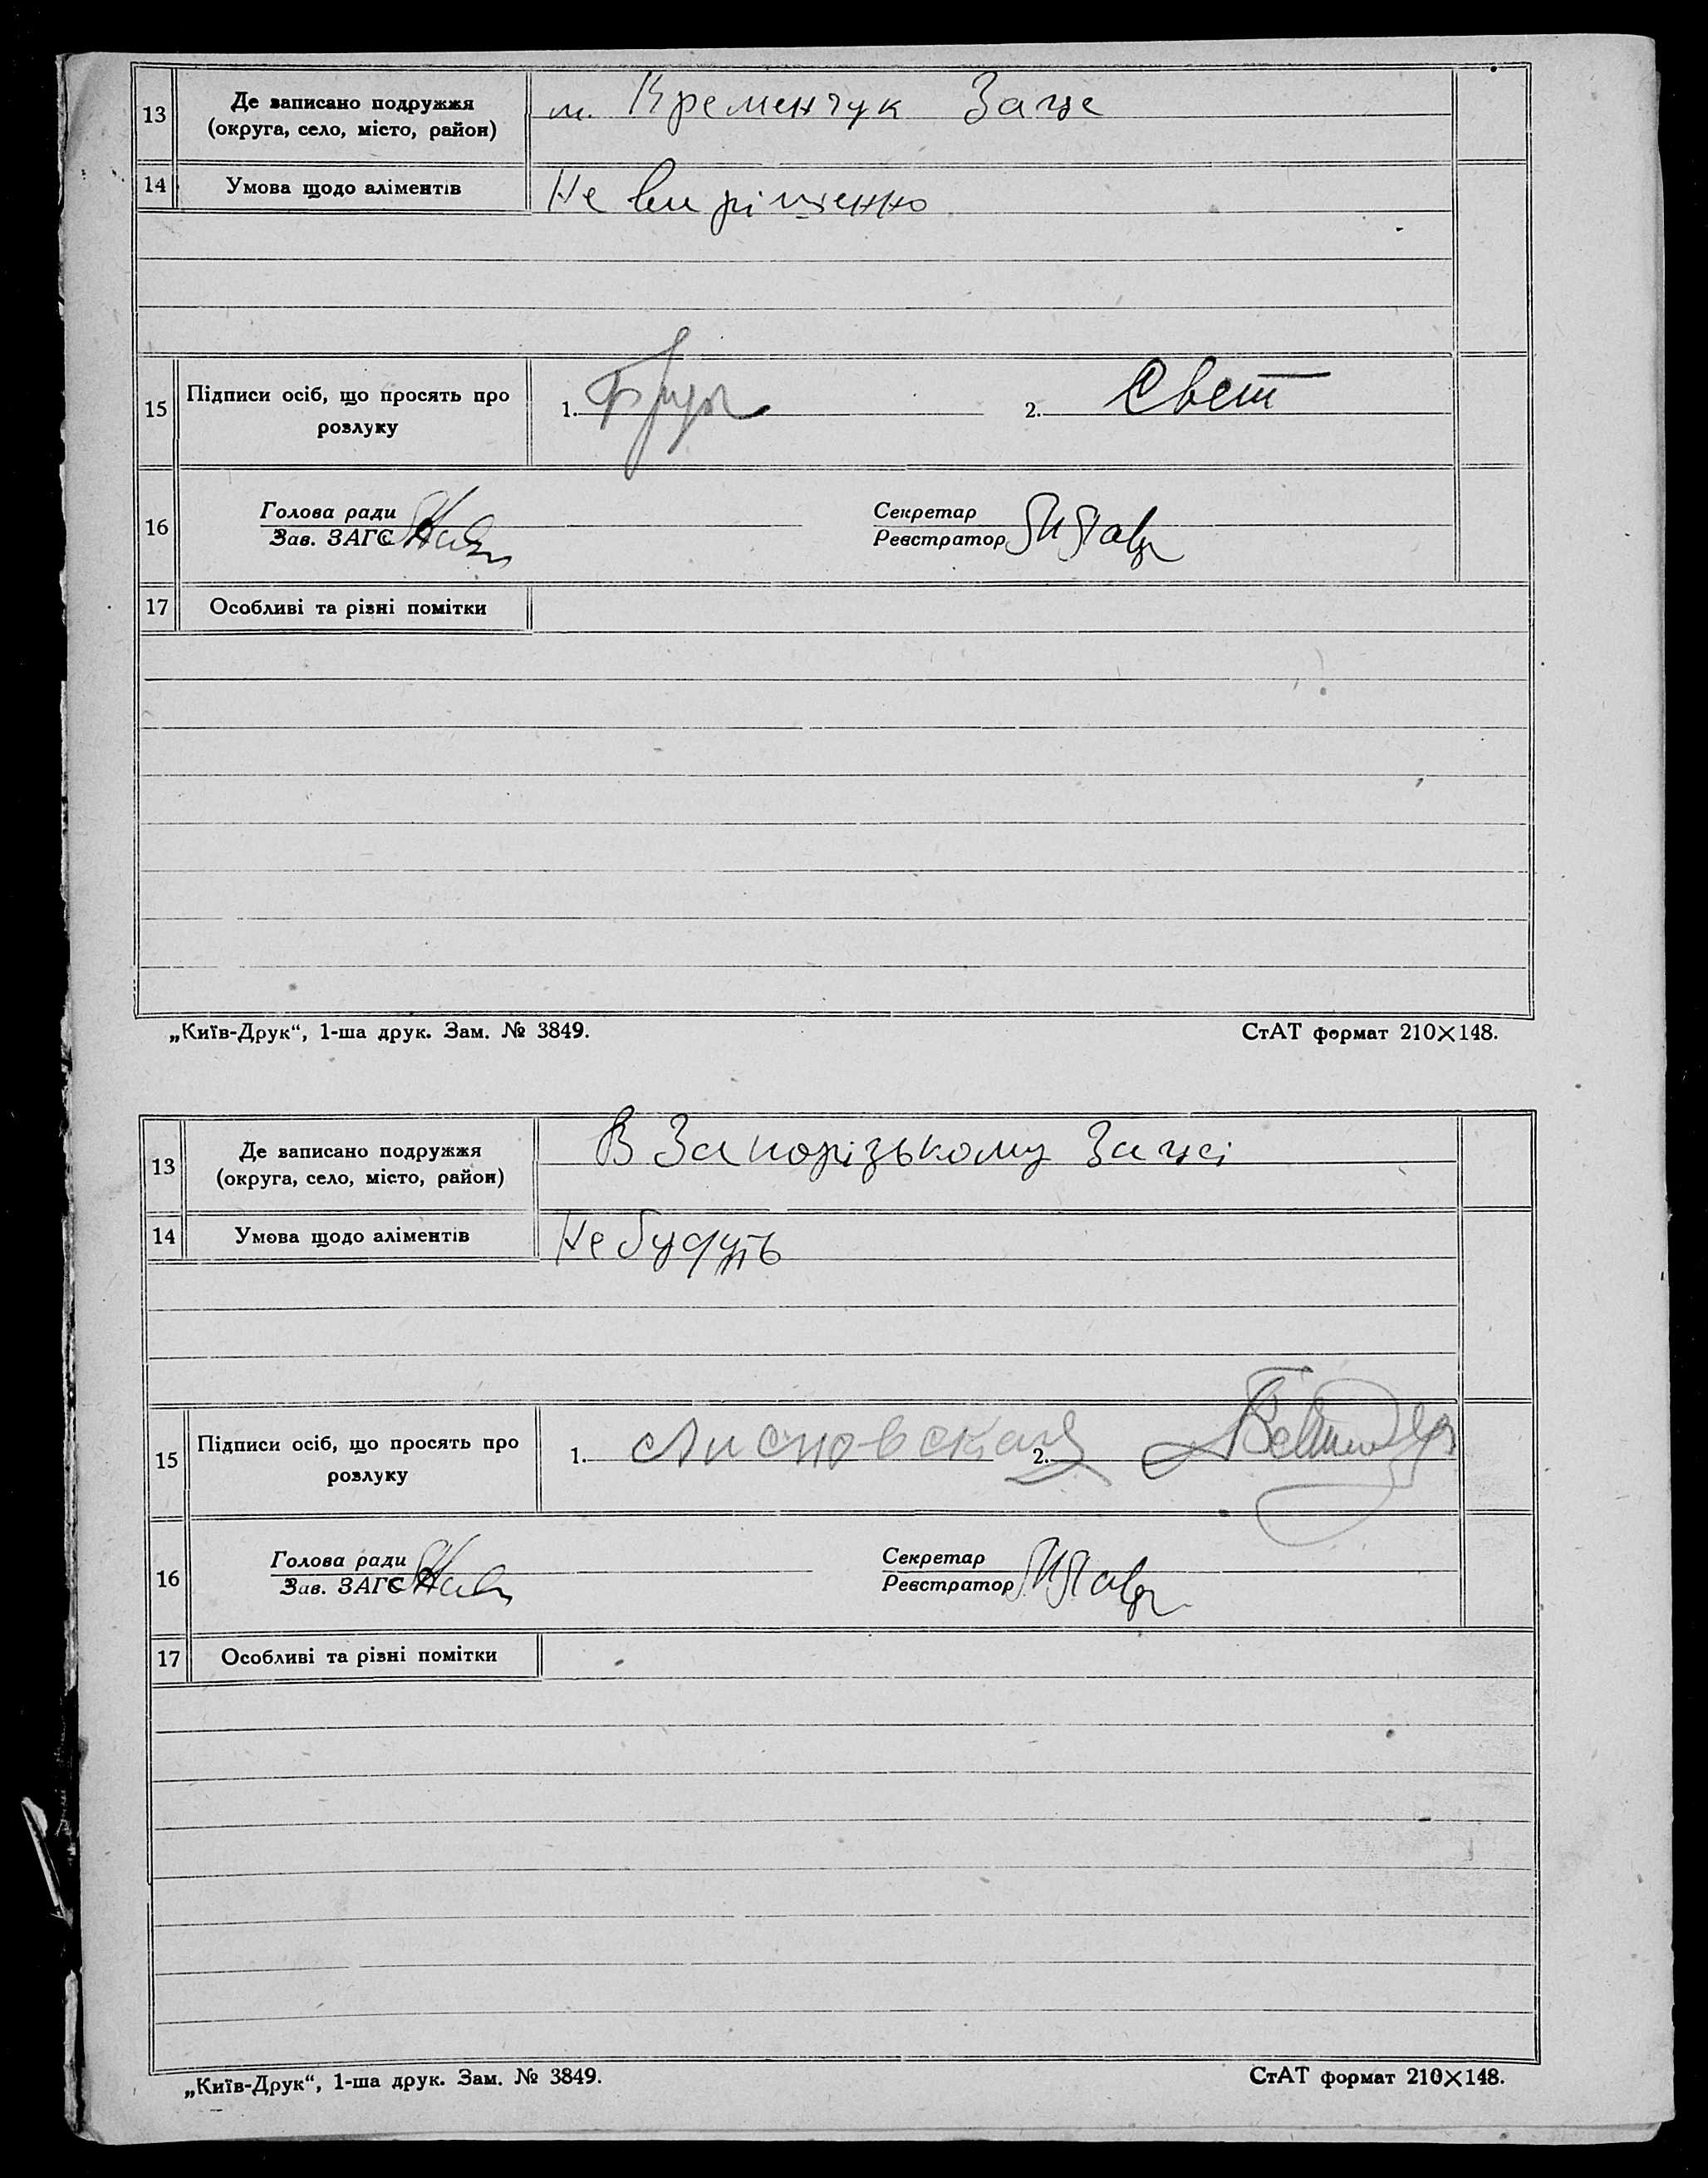 13 Де записано подружжя м. Кременчук Загсе
(округа, село, місто, район)
14 Умова щодо аліментів Не вирішенно
15 Підписи осіб, що просять про 1. 2. Свет
розлуку
16 Голова ради Секретар
Зав. ЗАГС Реєстратор
17 Особливі та різні помітки
„Київ-Друк“, 1-ша друк. Зам. № 3849. СтАТ формат 210×148.
13 Де записано подружжя В Запорізькому Загсі
(округа, село, місто, район)
14 Умова щодо аліментів Не будуть
15 Підписи осіб, що просять про 1. 2.
розлуку
16 Голова ради Секретар
Зав. ЗАГС Реєстратор
17 Особливі та різні помітки
„Київ-Друк“, 1-ша друк. Зам. № 3849. СтАТ формат 210×148.